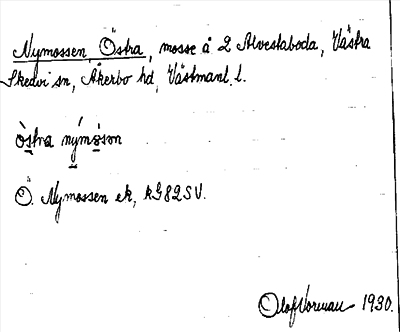 Nymossen, Östra, mosse å 2 Alvestaboda, Västra
Skedvi sn, Åkerbo hd, Västmanl. l.
òstra nýmòson
Ö. Nymossen ek, kG82SV.
Olof Norman 1930.